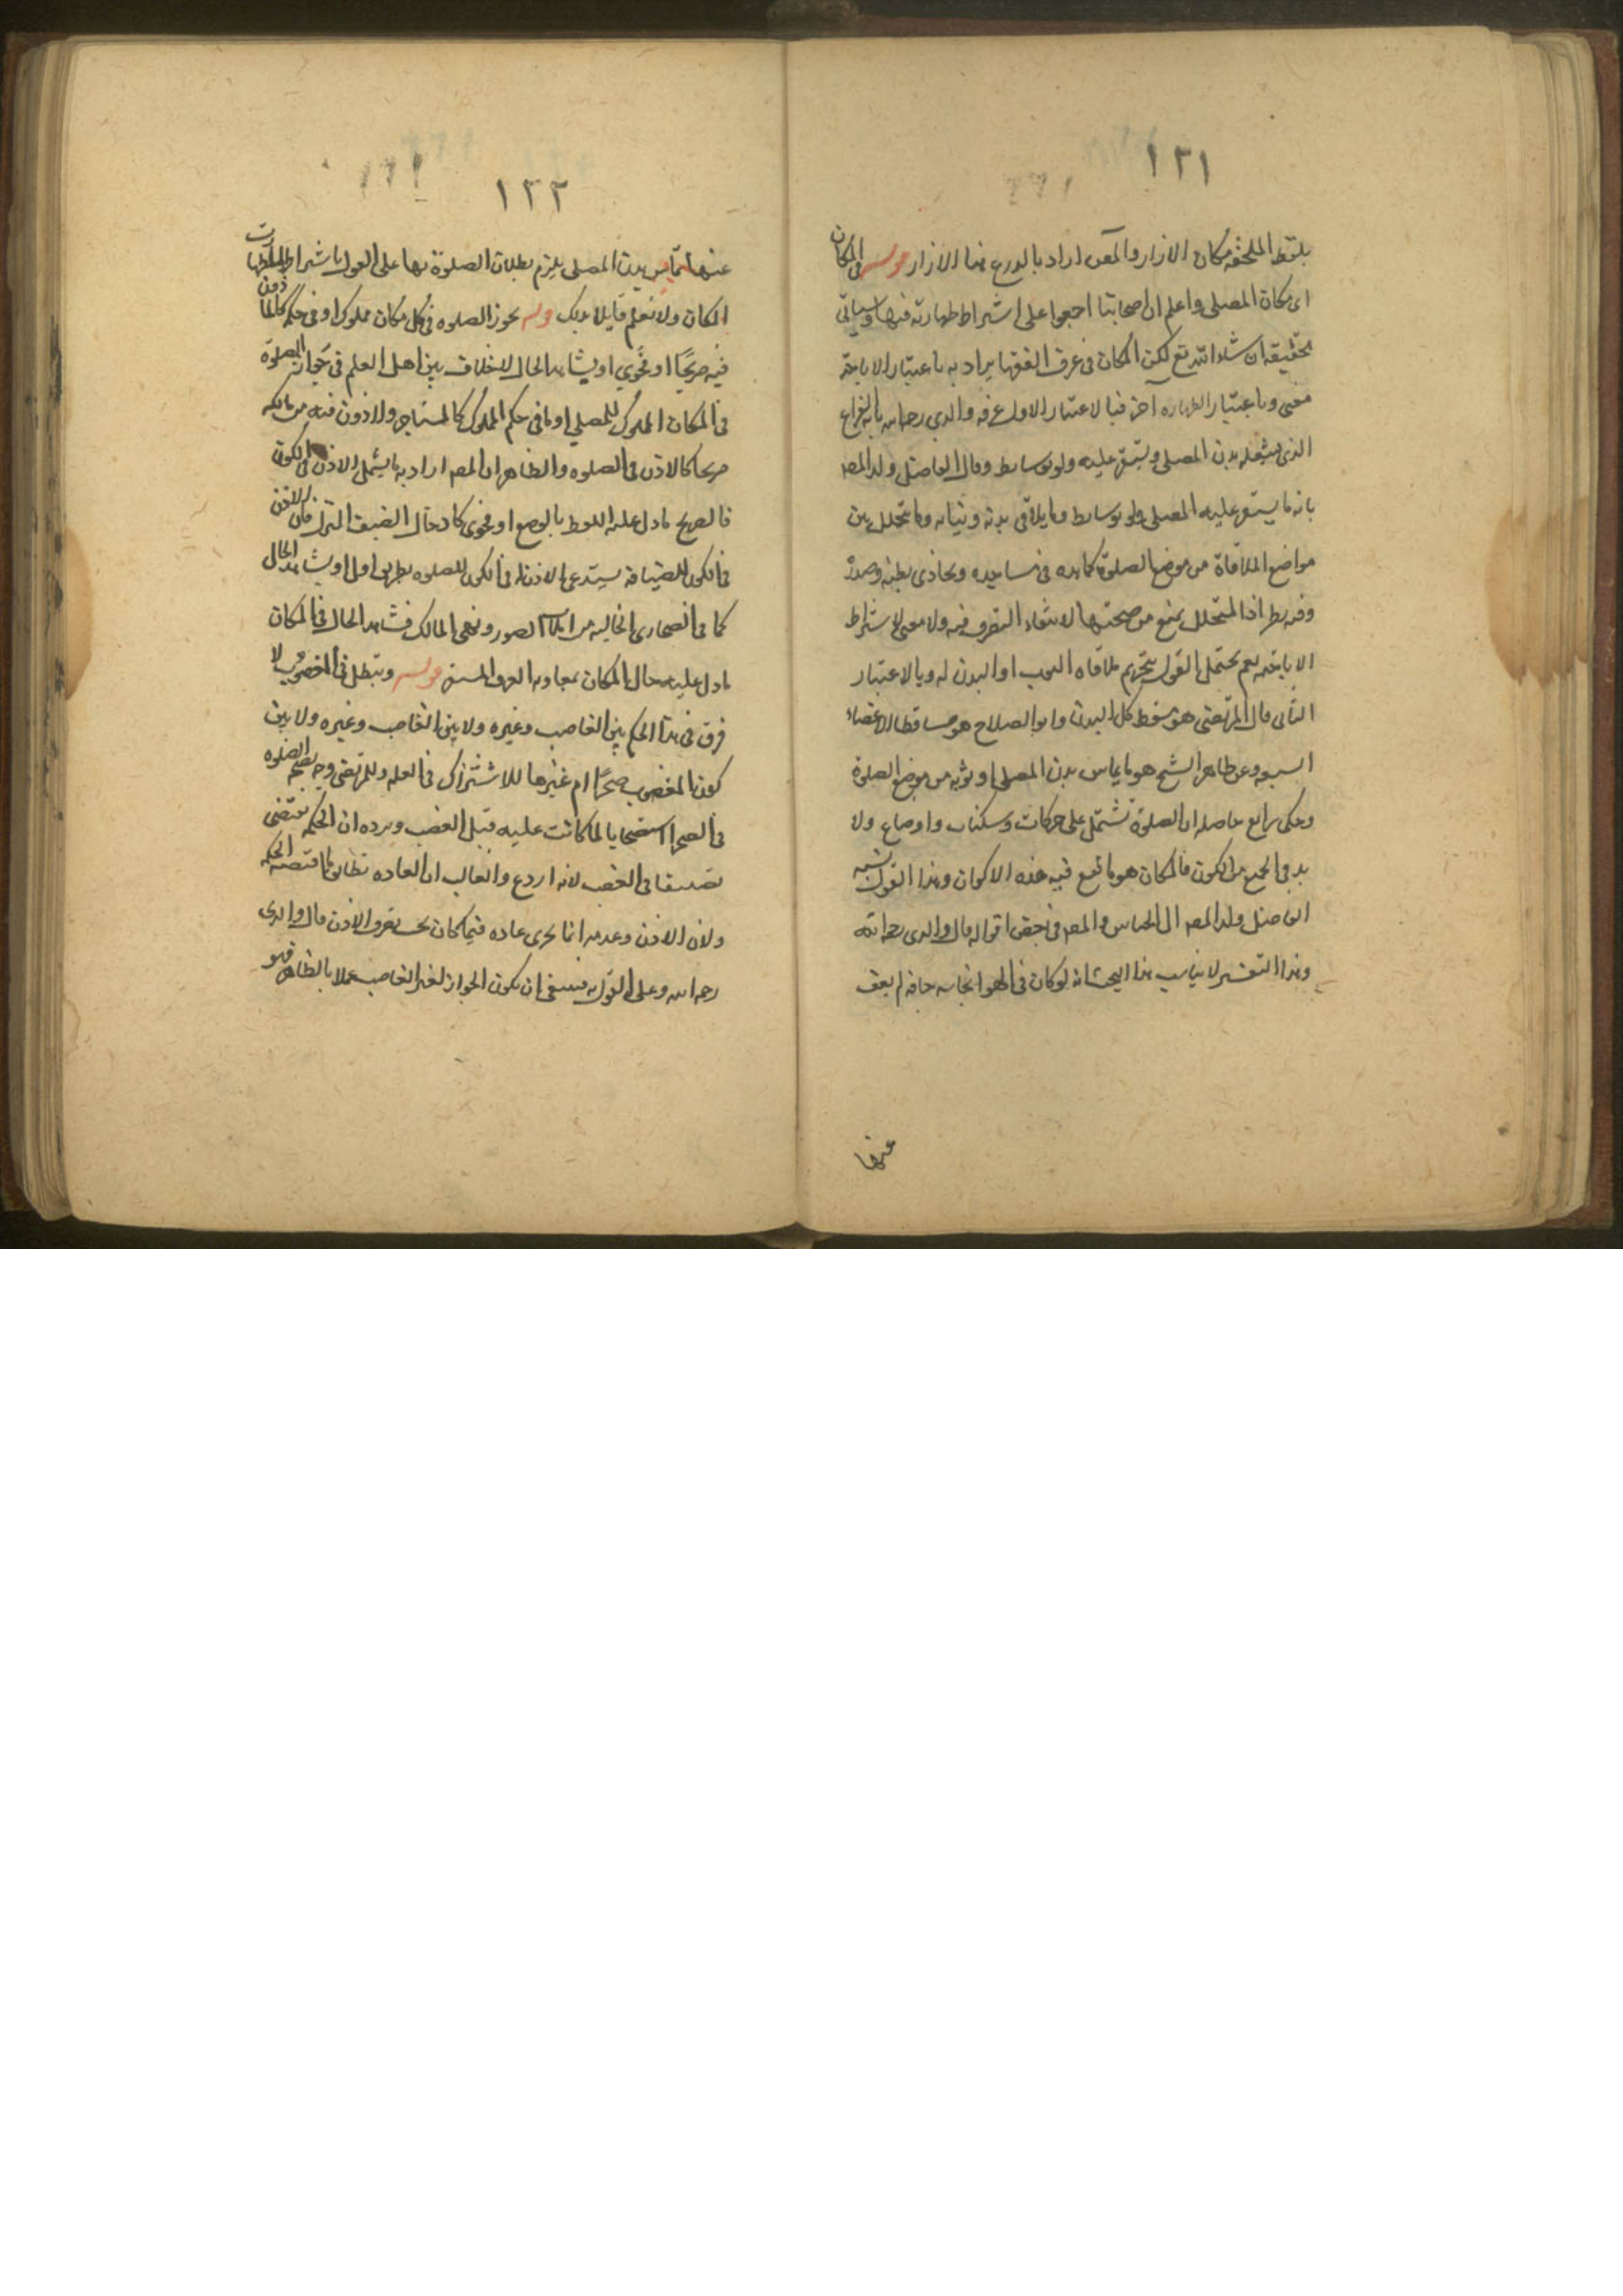 ١٢١
بلفظ الملحفه مكان الازار والمآل اراد بالدرع هنا الازار قوله في المكان
اى مكان المصلى واعلم ان اصحابنا اجمعوا على اشتراط طهارته فيها وسياتى
تحقيقه ان شاء الله تع لكن المكان فى عرف الفقها يراد به باعتبار الاباحة
معنى وباعتبار الطهارة آخر فبالاعتبار الاول عرفه والدى رحمه الله بانه الفراغ
الذى يشغله بدن المصلى ويستقر عليه ولو بوسايط وقال الفاضل ولد المصـ
بانه ما يستقر عليه المصلى ولو بوسايط وما يلاقى بدنه وثيابه وما يتخلل بين
مواضع الملاقاة من موضع الصلوة كما بده فى مساجده ويحاذى بطنه وصدره
وفيه نظر اذ المتخلل يمنع من صحتها لانتفاء التصرف فيه ولا معنى لاشتراط
الاباحة نعم يحتمل القول بتحريم ملاقاة الثوب او البدن له وبالاعتبار
الثانى قال المرتضى هو مسقط كل البدن وابو الصلاح هو مساقط الاعضاء
السبعه وعن ظاهر الشيخ هو ما يماس بدن المصلى او ثوبه من موضع الصلوة
وحكى رابع حاصله ان الصلوة تشتمل على حركات وسكنات واوضاع ولا
بد فى الجميع من الكون فالمكان هو ما تقع فيه هذه الاكوان وهذا القول نسبه
الفاضل ولد المصـ الى الجباى والمصـ فى بعض اقواله قال والدى رحمه الله
وهذا التفسير لا يناسب هذا البحث لانه لو كان فى الهوا نجاسه جافه لم يعف
عنها
١٢٢
عنها تماس بدن المصلى يلزم بطلان الصلوة بها على القول باشتراط طهارت
المكان ولا نعلم قايلا بذلك قوله يجوز الصلوه فى كل مكان مملوك او فى حكمه كالماذون
فيه صريحًا او فحوى او بشاهد الحال لا خلاف بين اهل العلم فى جواز الصلوة
فى المكان المملوك للمصلى او ما فى حكم المملوك كالمستاجر والماذون فيه من مالكه
صريحا كالاذن فى الصلوه والظاهر ان المصـ اراد به ما يشمل الاذن فى الكون
فالصريح ما دل عليه اللفظ بالوضع او فحوى كادخال الضيف المنزل فان الاذن
فى الكون للضيافه يستدعى الاذن فى الكون للصلوه بطريق اولى او بشاهد الحال
كما فى الصحارى الخاليه من امارات الضرر ونهى المالك فشاهد الحال فى المكان
ما دل عليه حال المكان بمعاونه العرف المستقر قوله وتبطل فى المغصوب لا
فرق فى هذا الحكم بين الغاصب وغيره ولا بين الغاصب وغيره ولا بين
كون المغصوب صحرًا ام غيرها للاشتراك فى العله وللمرتضى وجه بصحة الصلوه
فى الصحرا استصحابا لما كانت عليه قبل الغصب ويرده ان الحكمه تقتضى
تضييقا فى الغصب لانه اردع والغالب ان العاده تطابق ما اقتضته الحكمه
ولان الاذن وعدمه انما يجرى عاده فيما كان بحث يعرف الاذن قال والدى
رحمه الله وعلى القول به فينبغى ان يكون الجواز لغير الغاصب عملا بالظاهر فهو